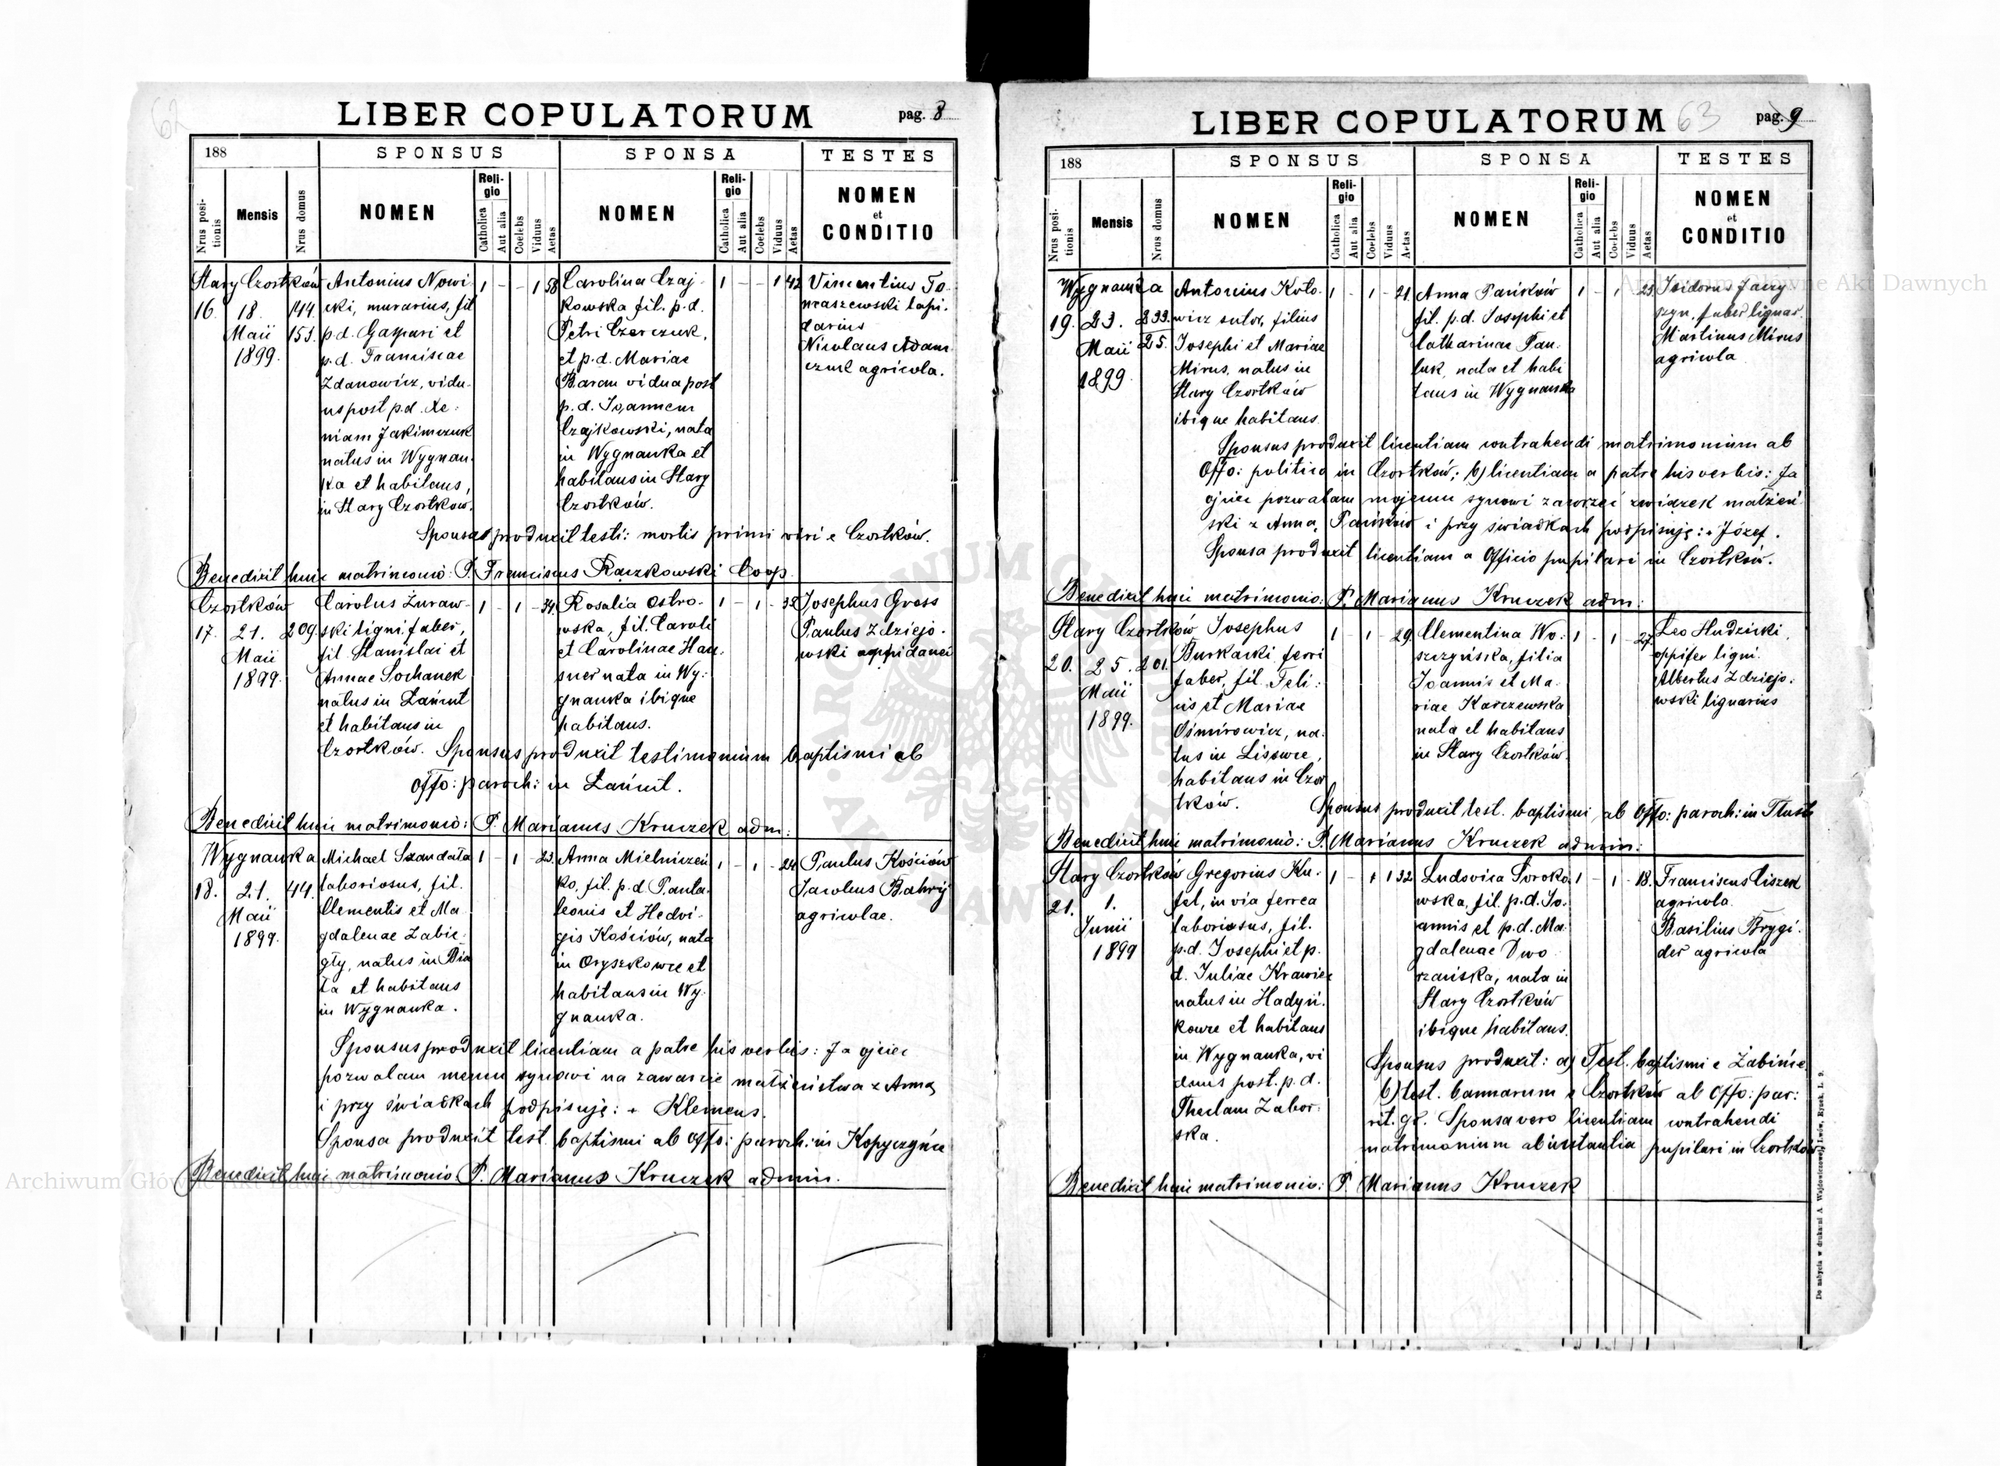 62
LIBER COPULATORUM
pag. 8
188
SPONSUS
SPONSA
TESTES
Nrus posi-
tionis
Mensis
Nrus domus
NOMEN
Reli-
gio
Catholica
Aut alia
Coelebs
Viduus
Aetas
NOMEN
Reli-
gio
Catholica
Aut alia
Coelebs
Viduus
Aetas
NOMEN
et
CONDITIO
Stary Czortków
16. 18. 144.
Maii 153.
1899.
Antonius Nowi-
cki, murarius, fil.
p.d. Gaspari et
p.d. Franciscae
Zdanowicz, vidu-
us post p.d. Xe-
niam Jakimczuk
natus in Wygnan-
ka et habitans,
in Stary Czortków.
1 - - 1 58
Carolina Czaj-
kowska fil. p.d.
Petri Czorczuk,
et p.d. Mariae
Baran vidua post
p.d. Joannem
Czajkowski, nata
in Wygnanka et
habitans in Stary
Czortków.
1 - - 1 42
Vincentius To-
maszewski lapi-
darius
Nicolaus Adam
czuk agricola.
Sponsa produxit testi: mortis primi viri e Czortków.
Benedixit huic matrimonio: P. Franciscus Raczkowski Coop.
Czortków
17. 21. 209.
Maii
1899.
Carolus Żuraw-
ski ligni faber,
fil. Stanislai et
Annae Sochanek
natus in Łańcut
et habitans in
Czortków.
1 - 1 - 34
Rosalia Ostro-
wska, fil. Caroli
et Carolinae Hau-
sner nata in Wy-
gnanka ibique
habitans.
1 - 1 - 32
Josephus Gross
Paulus Zdziejo-
wski oppidanei
Sponsus produxit testimonium baptismi ab
Offo: paroch: in Łańcut.
Benedixit huic matrimonio: P. Marianus Kruczek adm:
Wygnanka
18. 21. 44.
Maii
1899.
Michael Szandała
laboriosus, fil.
Clementis et Ma-
gdalenae Zabie-
gły, natus in Bia
ła et habitans
in Wygnanka.
1 - 1 - 23.
Anna Mielniczeń
ko, fil. p.d Panta-
leonis et Hedvi-
gis Kościów, nata
in Oryszkowce et
habitans in Wy-
gnanka.
1 - 1 - 24
Paulus Kościów
Jacobus Bahrij
agricolae.
Sponsus produxit licentiam a patre his verbis: Ja ojciec
pozwalam memu synowi na zawarcie małżeństwa z Anną
i przy świadkach podpisuję: + Klemens.
Sponsa produxit test. baptismi ab Offo: paroch: in Kopyczyńce
Benedixit huic matrimonio: P. Marianus Kruczek admin.
LIBER COPULATORUM
63
pag. 9
188
SPONSUS
SPONSA
TESTES
Nrus posi-
tionis
Mensis
Nrus domus
NOMEN
Reli-
gio
Catholica
Aut alia
Coelebs
Viduus
Aetas
NOMEN
Reli-
gio
Catholica
Aut alia
Coelebs
Viduus
Aetas
NOMEN
et
CONDITIO
Wygnanka
19. 23. 233.
Maii 25.
1899.
Antonius Koto-
wicz sutor, filius
Josephi et Mariae
Mirus, natus in
Stary Czortków
ibique habitans.
1 - 1 - 21.
Anna Pańków
fil. p.d. Josephi et
Catharinae Pan-
luk, nata et habi
tans in Wygnanka
1 - 1 - 23.
Isidorus
faber lignar.
Martinus Mirus
agricola
Sponsus produxit licentiam contrahendi matrimonium ab
Offo: politico in Czortków; b) licentiam a patre his verbis: Ja
ojciec pozwalam mojemu synowi zawrzeć związek małżeń-
ski z Anną Pańków i przy świadkach podpisuję: + Józef.
Sponsa produxit licentiam a Officio pupilari in Czortków.
Benedixit huic matrimonio: P. Marianus Kruczek adm:
Stary Czortków
20. 25. 201.
Maii
1899.
Josephus
Burkacki ferri
faber, fil. Feli-
cis et Mariae
Ośmirowicz, na-
tus in Lisowce,
habitans in Czor
tków.
1 - 1 - 29.
Clementina Wo-
szczyńska, filia
Joannis et Ma-
riae Karczewska
nata et habitans
in Stary Czortków.
1 - 1 - 27.
Leo Hudzicki,
opifer ligni.
Albertus Zdziejo-
wski lignarius
Sponsus produxit test. baptismi ab Offo: paroch: in Tłuste
Benedixit huic matrimonio: P. Marianus Kruczek admin:
Stary Czortków
21. 1.
Junii
1899
Gregorius Ku-
fel, in via ferrea
laboriosus, fil.
p.d. Josephi et p.
d. Juliae Krawiec
natus in Hadyń-
kowce et habitans
in Wygnanka, vi
duus post. p.d.
Theclam Zabor-
ska.
1 - 1 1 32
Ludovica Soroko
wska, fil. p.d. Jo-
annis et p.d. Ma-
gdalenae Dwo
rzańska, nata in
Stary Czortków
ibique habitans.
1 - 1 - 18.
Franciscus Ciszek
agricola.
Basilius Brygi-
der agricola
Sponsus produxit: a) Test. baptismi e Żabińce
b) test. bannorum e Czortków ab Offo: par:
rit. gr. Sponsa vero licentiam contrahendi
matrimonium ab instantia pupilari in Czortków
Benedixit huic matrimonio: P. Marianus Kruczek
Archiwum Główne Akt Dawnych
Archiwum Główne Akt Dawnych